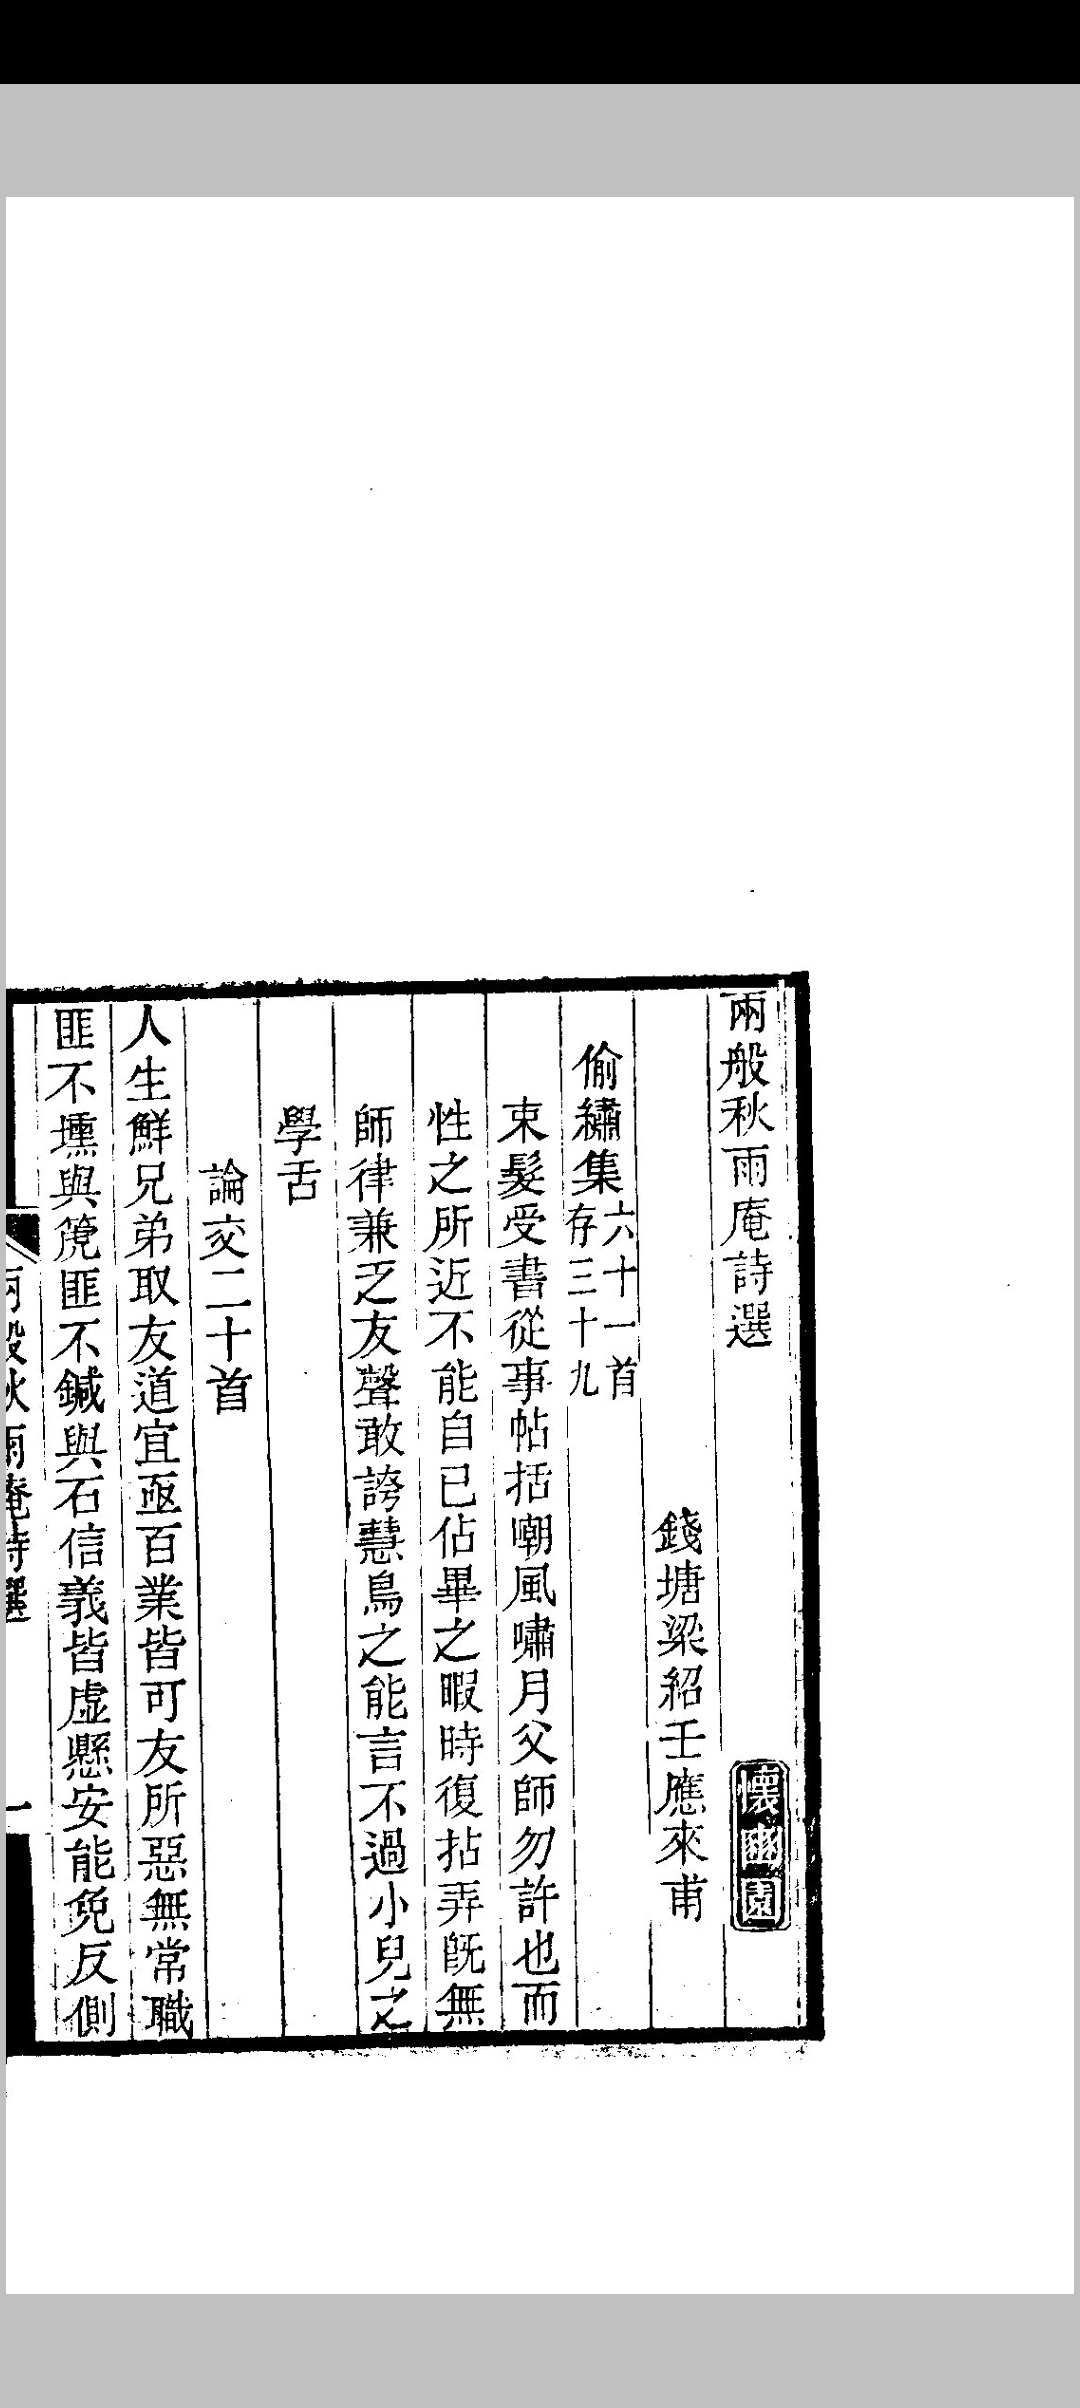 兩般秋雨庵詩選
懷豳園
錢塘梁紹壬應來甫
偷繡集六十一首存三十九
束髮受書從事帖括嘲風嘯月父師勿許也而
性之所近不能自已佔畢之暇時復拈弄旣無
師律兼乏友聲敢誇慧鳥之能言不過小兒之
學舌
論交二十首
人生鮮兄弟取友道宜亟百業皆可友所惡無常職
匪不壎與箎匪不鍼與石信義皆虛懸安能免反側
兩般秋雨庵詩選
一